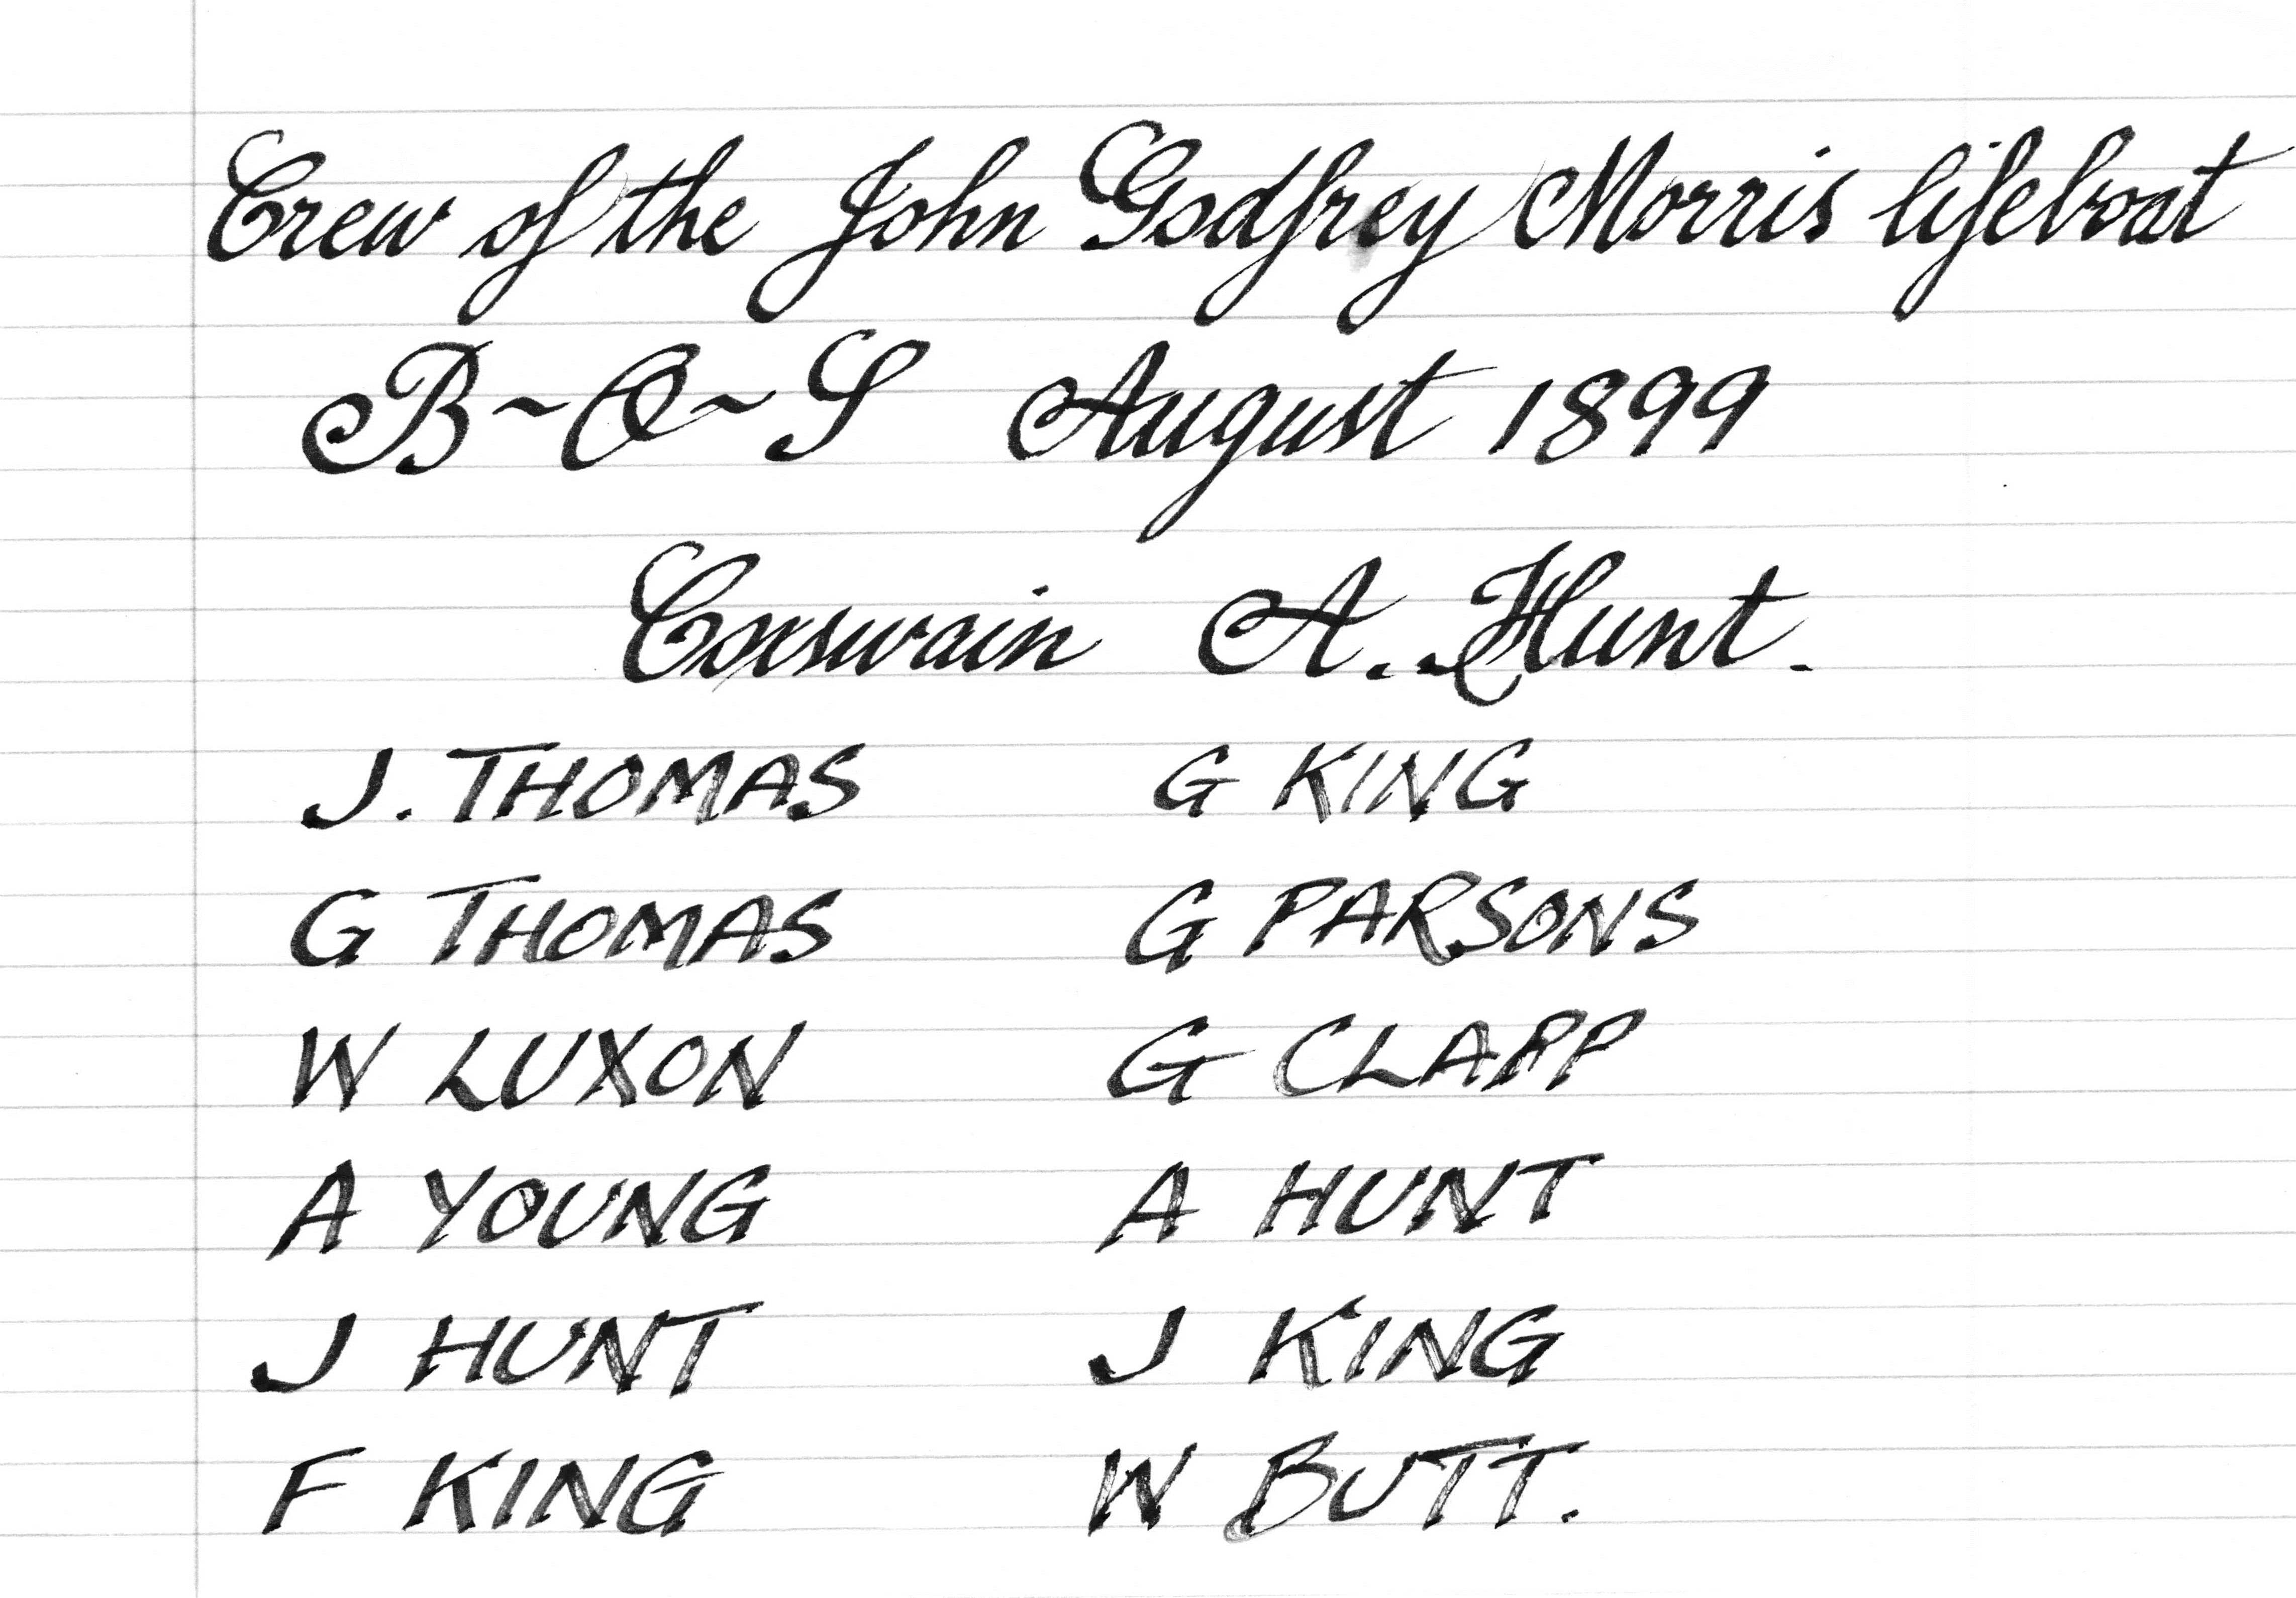 Crew of the John Godfrey Morris lifeboat
B~O~S August 1899
Coxswain A. Hunt.
J. THOMAS G KING
G THOMAS G PARSONS
W LUXON G CLAPP
A YOUNG A HUNT
J HUNT J KING
F KING W BUTT.